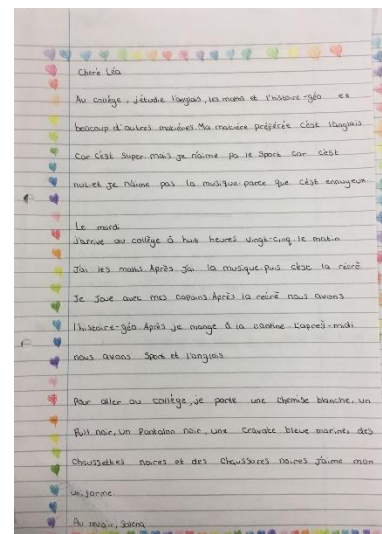 Cherè Léa
Au collège, j'étudie l'anglais, les maths et l'histoire-géo et
beacoup d'autres matières. Ma matière préférée c'est l'anglais
car c'est super. mais je n'aime pa le sport car c'est
nul et je n'aime pas la musique parce que c'èst ennuyeux.
Le mardi
J'arrive au collège à huit heures vingt-cinq le matin
J'ai les maths. Après j'ai la musique. puis c'èst la récré
Je joue avec mes copains. Après la récré nous avons
l'histoire-géo. Après je mange à la cantine. L'aprés-midi
nous avons sport et l'anglais.
Pour aller au collège, je porte une chemise blanche, un
Pull noir, un pantalon noir, une cravate bleue marine, des
chaussettes noires et des chaussures noires j'aime mon
uniforme.
Au revoir,